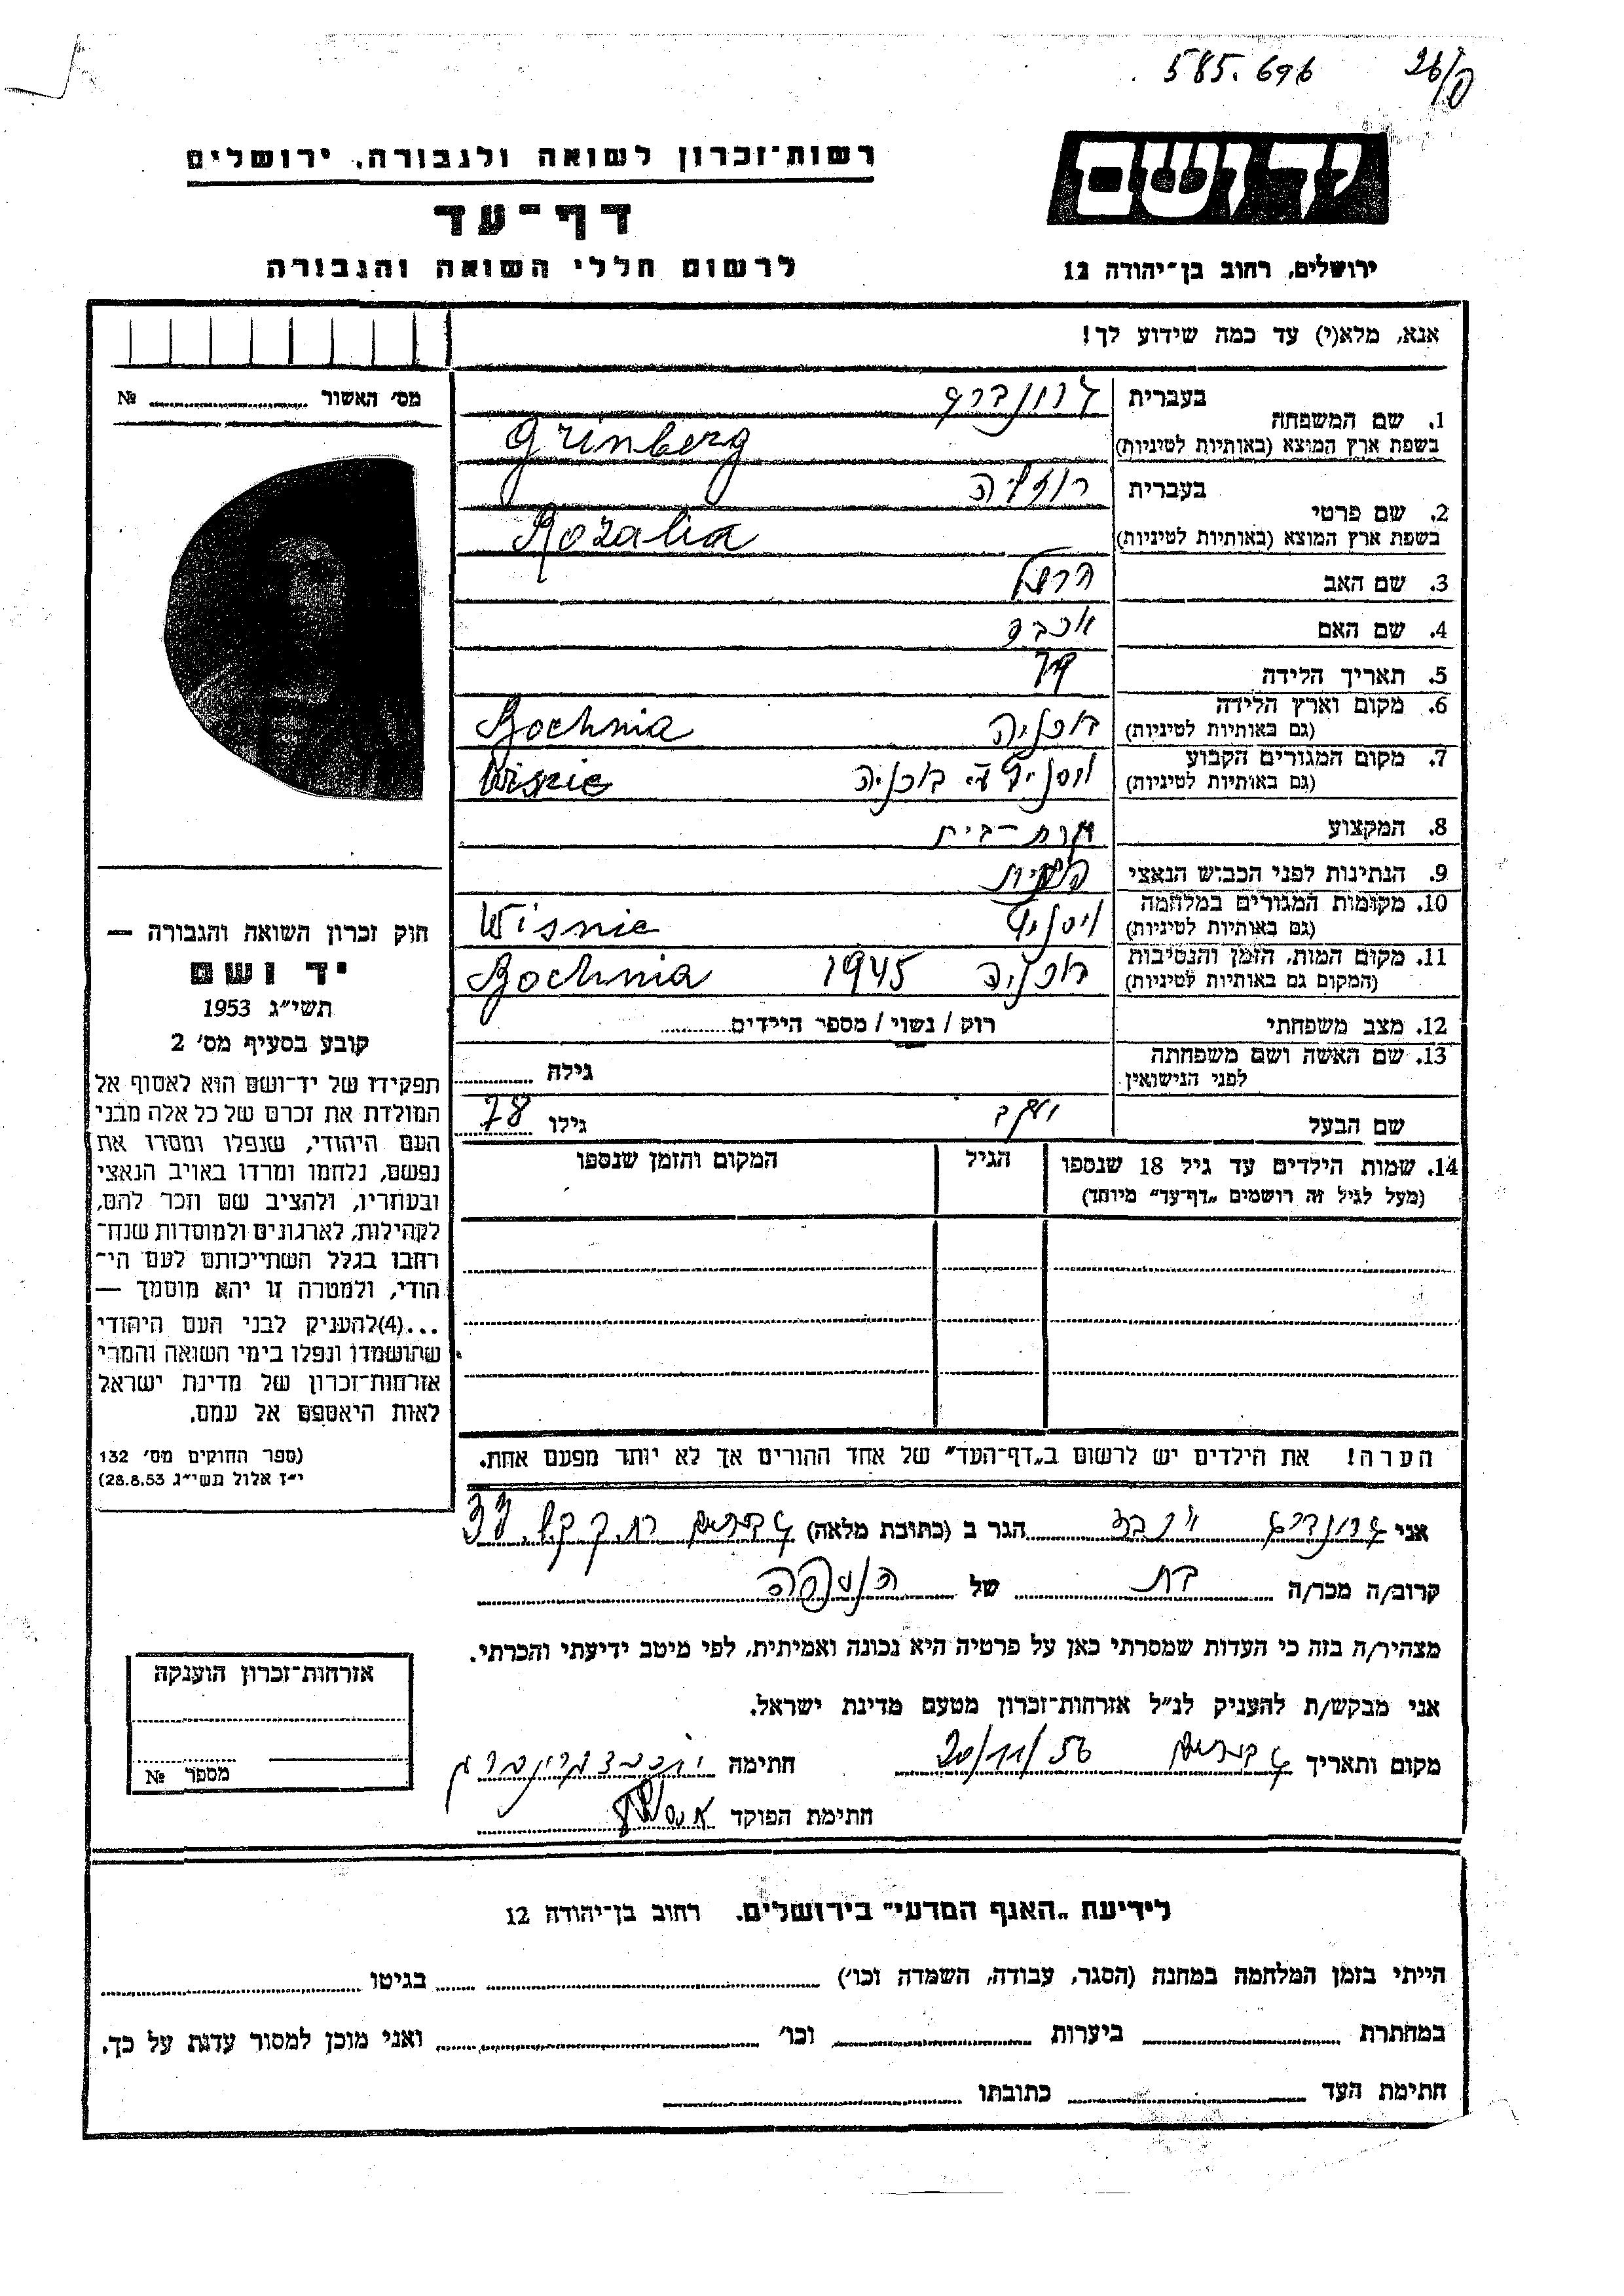 585.696
26/פ
יד ושם
רשות־זכרון לשואה ולגבורה, ירושלים
דף־עד
לרשום חללי השואה והגבורה
ירושלים, רחוב בן־יהודה 12
אנא, מלא(י) עד כמה שידוע לך!
מס׳ האשור № 
1. שם המשפחה בעברית גרונברג
בשפת ארץ המוצא (באותיות לטיניות) Grünberg
2. שם פרטי בעברית רוזליה
בשפת ארץ המוצא (באותיות לטיניות) Rozalia
3. שם האב הרשל
4. שם האם
5. תאריך הלידה
6. מקום וארץ הלידה בוכניה Bochnia
(גם באותיות לטיניות)
7. מקום המגורים הקבוע בוכניה
(גם באותיות לטיניות)
8. המקצוע עקרת־בית
9. הנתינות לפני הכבוש הנאצי פולנית
10. מקומות המגורים במלחמה Wisnie
(גם באותיות לטיניות)
11. מקום המות, הזמן והנסיבות בוכניה 1945 Bochnia
(המקום גם באותיות לטיניות)
12. מצב משפחתי רוק / נשוי / מספר הילדים
13. שם האשה ושם משפחתה
לפני הנישואין גילה
שם הבעל יעקב גילו 78
14. שמות הילדים עד גיל 18 שנספו הגיל המקום והזמן שנספו
(מעל לגיל זה רושמים „דף־עד” מיוחד)
הערה! את הילדים יש לרשום ב„דף־העד” של אחד ההורים אך לא יותר מפעם אחת.
חוק זכרון השואה והגבורה —
יד ושם
תשי״ג 1953
קובע בסעיף מס׳ 2
תפקידו של יד־ושם הוא לאסוף אל
המולדת את זכרם של כל אלה מבני
העם היהודי, שנפלו ומסרו את
נפשם, נלחמו ומרדו באויב הנאצי
ובעוזריו, ולהציב שם וזכר להם,
לקהילות, לארגונים ולמוסדות שנח־
רחבו בגלל השתייכותם לעם הי־
הודי, ולמטרה זו יהא מוסמך —
...(4)להעניק לבני העם היהודי
שהושמדו ונפלו בימי השואה והמרי
אזרחות־זכרון של מדינת ישראל
לאות היאספם אל עמם.
(ספר החוקים מס׳ 132
י״ז אלול תשי״ג 28.8.53)
אני גרונברג הגר ב (כתובת מלאה)
קרוב/ה מכר/ה בת של הנספה
מצהיר/ה בזה כי העדות שמסרתי כאן על פרטיה היא נכונה ואמיתית, לפי מיטב ידיעתי והכרתי.
אני מבקש/ת להעניק לנ״ל אזרחות־זכרון מטעם מדינת ישראל.
מקום ותאריך 20/11/56 חתימה
חתימת הפוקד
אזרחות־זכרון הוענקה
מספר №
לידיעת „האגף המדעי” בירושלים. רחוב בן־יהודה 12
הייתי בזמן המלחמה במחנה (הסגר, עבודה, השמדה וכו׳) בגיטו
במחתרת ביערות וכו׳ ואני מוכן למסור עדות על כך.
חתימת העד כתובתו